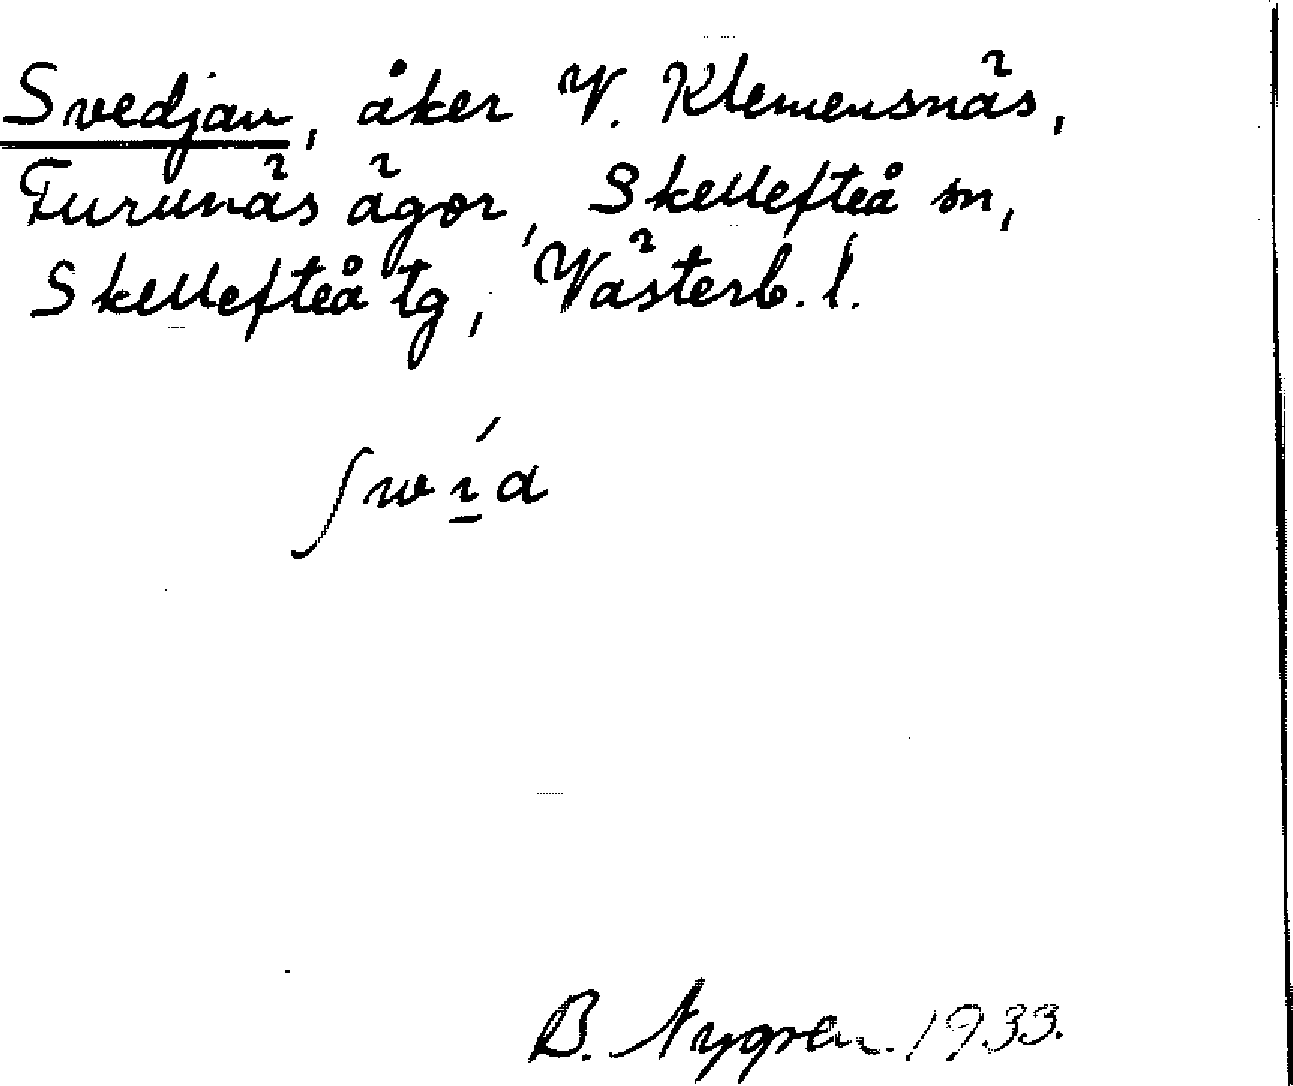 Svedjan, åker V. Klemensnäs,
Furunäs ägor, Skellefteå sn,
Skellefteå tg, Västerb. l.
B. Nygren. 1933.